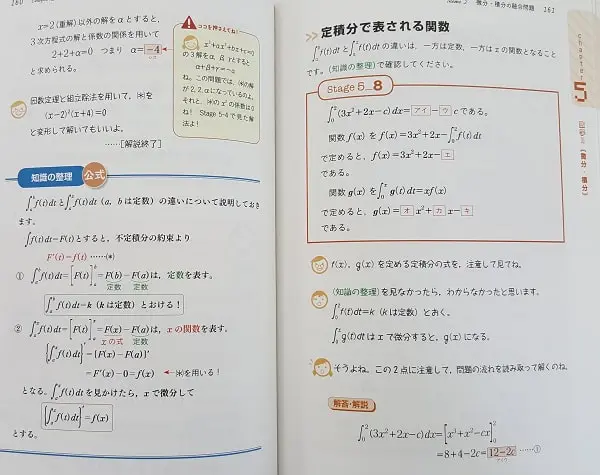 160
x=2(重解)以外の解をαとすると，
3次方程式の解と係数の関係を用いて
2+2+α=0 つまり α=-4
と求められる。
ココを押さえてね!
x³+ax²+bx+c=0
の3解をα，β，γとすると
α+β+γ=-a
ね。この問題では，(*)の解
が2，2，αになっているのよ。
それと，(*)のx²の係数は0
ね! Stage 5-4で見た解
法よ!
因数定理と組立除法を用いて，(*)を
(x-2)²(x+4)=0
と変形して解いてもいいよ。
……[解説終了]
知識の整理 公式
∫ₐᵇf(t)dtと∫ₐˣf(t)dt (a，bは定数) の違いについて説明しておき
ます。
∫f(t)dt=F(t)とすると，不定積分の約束より
F'(t)=f(t) ……(*)
① ∫ₐᵇf(t)dt=[F(t)]ₐᵇ=F(b)-F(a)は，定数を表す。
定数 定数
∫ₐᵇf(t)dt=k (kは定数) とおける!
② ∫ₐˣf(t)dt=[F(t)]ₐˣ=F(x)-F(a)は，xの関数を表す。
xの式 定数
{∫ₐˣf(t)dt}'={F(x)-F(a)}'
=F'(x)-0=f(x) ← (*)を用いる!
となる。∫ₐˣf(t)dtを見かけたら，xで微分して
{∫ₐˣf(t)dt}'=f(x)
とする。
微分・積分の融合問題 161
chapter
5
[微分・積分]
>> 定積分で表される関数
∫ₐᵇf(t)dtと∫ₐˣf(t)dtの違いは，一方は定数，一方はxの関数となること
です。(知識の整理)で確認してください。
Stage 5_8
∫₀²(3x²+2x-c)dx=アイ-ウcである。
関数f(x)をf(x)=3x²+2x-∫₀²f(t)dt
で定めると，f(x)=3x²+2x-エ
である。
関数g(x)を∫₀ˣg(t)dt=xf(x)
で定めると，g(x)=オx²+カx-キ
である。
f(x)，g(x)を定める定積分の式を，注意して見てね。
(知識の整理)を見なかったら，わからなかったと思います。
∫₀²f(t)dt=k (kは定数) とおく。
∫₀ˣg(t)dtはxで微分すると，g(x)になる。
そうよね。この2点に注意して，問題の流れを読み取って解くのね。
解答・解説
∫₀²(3x²+2x-c)dx=[x³+x²-cx]₀²
=8+4-2c=12-2c ……①
アイウ